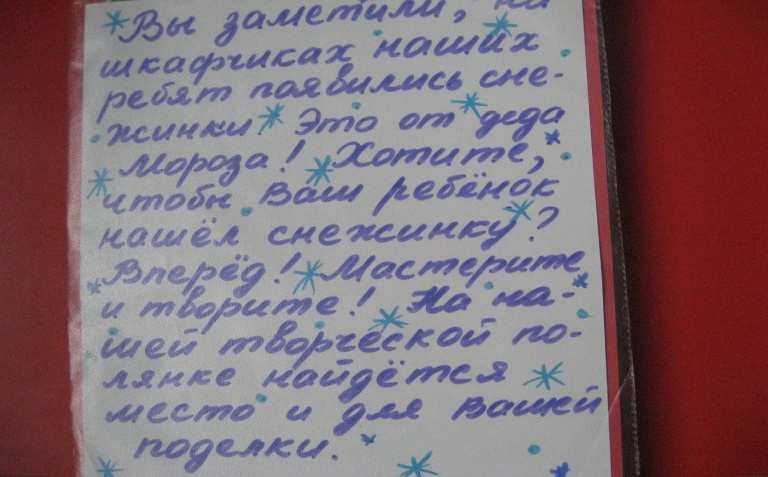 Вы заметили, на
шкафчиках наших
ребят появились сне-
жинки? Это от деда
Мороза! Хотите,
чтобы Ваш ребёнок
нашёл снежинку?
Вперёд! Мастерите
и творите! На на-
шей творческой по-
лянке найдётся
место и для Вашей
поделки.